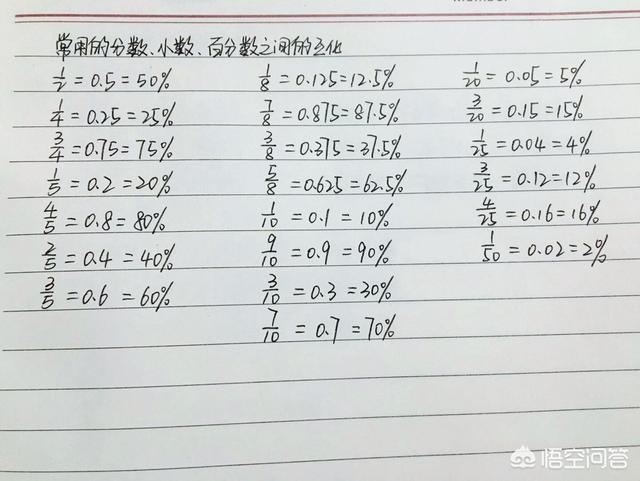 Member
常用的分数、小数、百分数之间的互化
1/2 = 0.5 = 50%
1/4 = 0.25 = 25%
3/4 = 0.75 = 75%
1/5 = 0.2 = 20%
4/5 = 0.8 = 80%
2/5 = 0.4 = 40%
3/5 = 0.6 = 60%
1/8 = 0.125 = 12.5%
7/8 = 0.875 = 87.5%
3/8 = 0.375 = 37.5%
5/8 = 0.625 = 62.5%
1/10 = 0.1 = 10%
9/10 = 0.9 = 90%
3/10 = 0.3 = 30%
7/10 = 0.7 = 70%
1/20 = 0.05 = 5%
3/20 = 0.15 = 15%
1/25 = 0.04 = 4%
3/25 = 0.12 = 12%
4/25 = 0.16 = 16%
1/50 = 0.02 = 2%
悟空问答